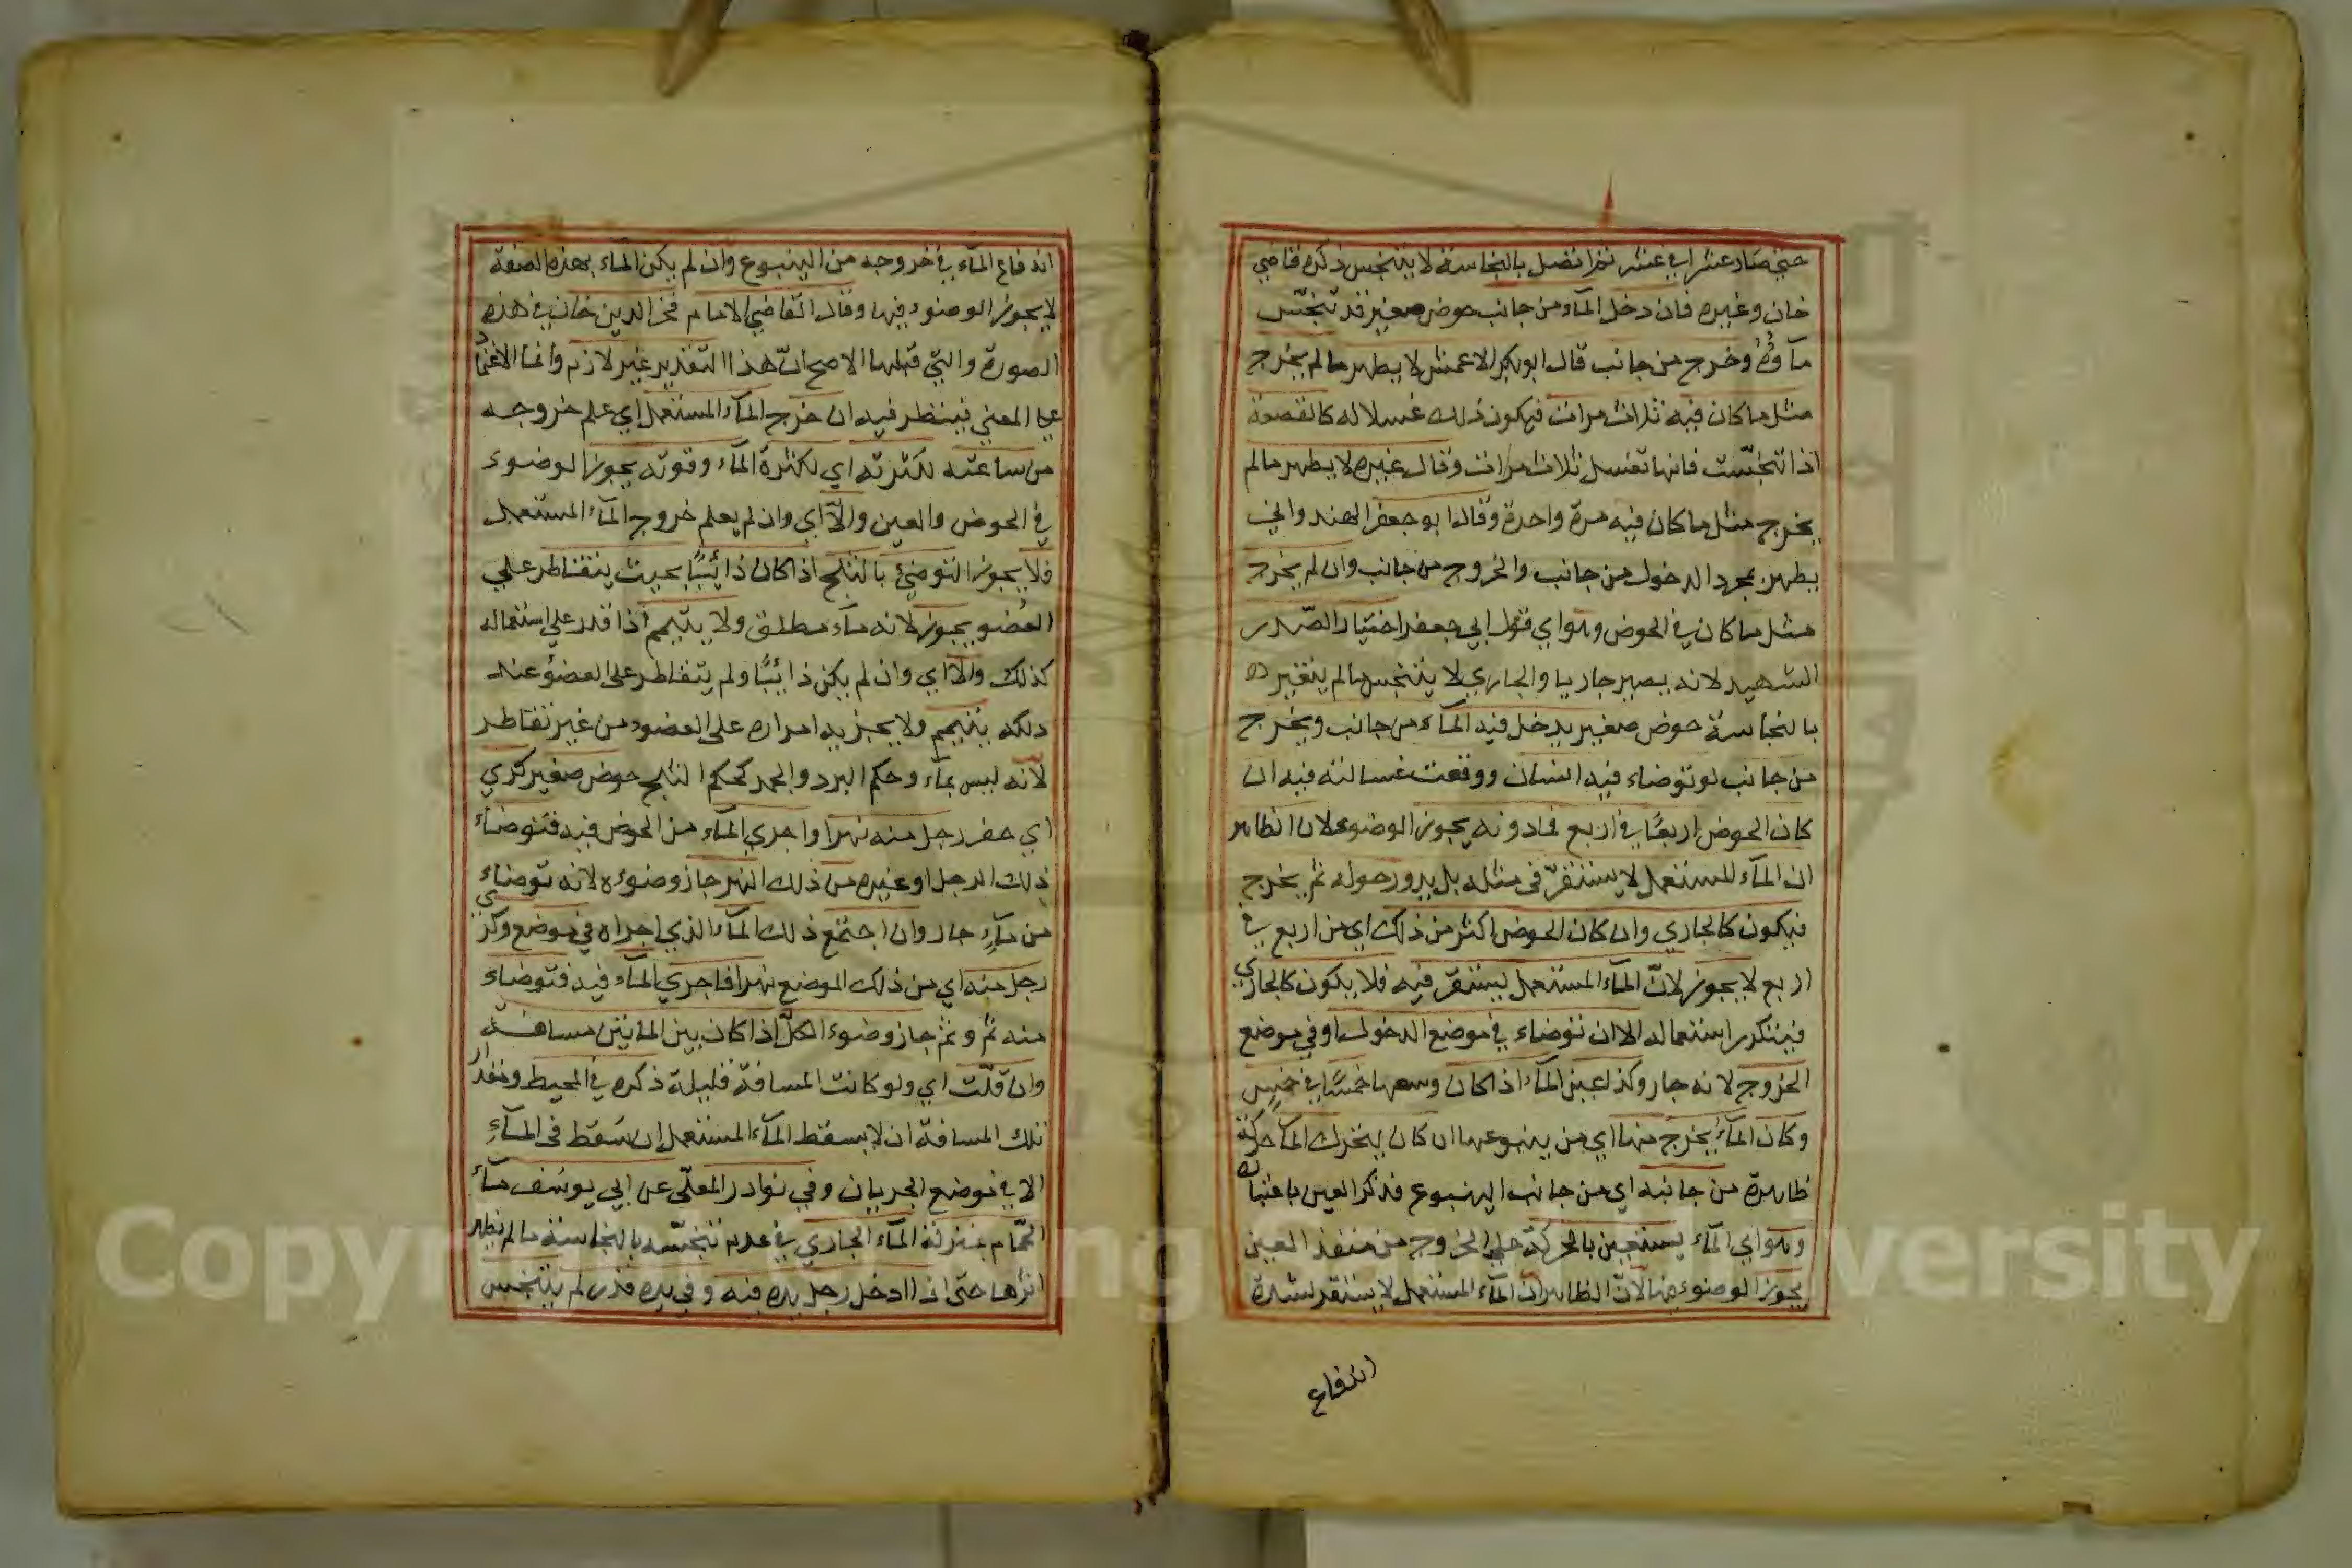 حتي صار عشرا في عشر ثم اتصل بالنجاسة لا يتنجس ذكره قاضي
خان وغيره فان دخل الماء من جانب حوض صغير قد تنجّس
مآؤهُ وخرج من جانب قال ابو بكر الاعمش لا يطهر ما لم يخرج
مثل ما كان فيه ثلاث مرات فيكون ذلك غسلا له كالقصعة
اذا تنجّست فانها تغسل ثلاث مرات وقال غيره لا يطهر ما لم
يخرج مثل ما كان فيه مرة واحدة وقال ابو جعفر الهندواني
يطهر بمجرد الدخول من جانب والخروج من جانب وان لم يخرج
مثل ما كان في الحوض وهو اي قول ابي جعفر اختيار الصّدر
الشهيد لانه يصير جاريا والجاري لا يتنجس ما لم يتغير
بالنجاسة حوض صغير يدخل فيه المآء من جانب ويخرج
من جانب لو توضاء فيه انسان ووقعت غسالته فيه ان
كان الحوض اربعًا في اربع فما دونه يجوز الوضوء لان الظاهر
ان المآء المستعمل لا يستقرّ في مثله بل يدور حوله ثم يخرج
فيكون كالجاري وان كان الحوض اكثر من ذلك اي من اربع في
اربع لا يجوز لانّ المآء المستعمل يستقرّ فيه فلا يكون كالجاري
فيتكرر استعماله الا ان توضاء في موضع الدخول او في موضع
الخروج لانه جار وكذا عين المآء اذا كان وسعها خمسًا في خمس
وكان المآءُ يخرج منها اي من ينبوعها ان كان يتحرك المآ حركة
ظاهرة من جانبه اي من جانب الينبوع فذكر العين باعتبا
وهو اي المآء يستعين بالحركة علي الخروج من منفذ العين
يجوز الوضوء منها لانّ الظاهر ان المآء المستعمل لا يستقر لشدة
اندفاع
اندفاع المآء في خروجه من الينبوع وان لم يكن المآء بهذه الصفة
لا يجوز الوضوء فيها وقال القاضي الامام فخر الدين خان في هذه
الصورة والتي قبلها الاصح انّ هذا التقدير غير لازم وانما الاعتما
علي المعني فينظر فيه ان خرج المآء المستعمل اي علم خروجه
من ساعته لكثرته اي لكثرة المآء وقوته يجوز الوضوء
في الحوض والعين والّا اي وان لم يعلم خروج المآء المستعمل
فلا يجوز التوضئ بالثلج اذا كان ذائبًا بحيث يتقاطر علي
العُضو يجوز لانه مآء مطلق ولا يتيمم اذا قدر علي استعماله
كذلك والّا اي وان لم يكن ذائبًا ولم يتقاطر على العضوُ عند
دلكه يتيمم ولا يجزيه امراره على العضو من غير تقاطر
لانّه ليس بمآء وحكم البرد والجمد كحكم الثلج حوض صغير كري
اي حفر رجل منه نهرا واجري المآء من الحوض فيه فتوضاء
ذلك الرجل او غيره من ذلك النهر جاز وضوءه لانه توضاء
من مآءٍ جار وان اجتمع ذلك المآء الذي اجراه في موضع وكري
رجل منه اي من ذلك الموضع نهرا فاجري المآء فيه فتوضاء
منه ثم وثم جاز وضوء الكلّ اذا كان بين المائين مسافة
وان قلّت اي ولو كانت المسافة قليلة ذكره في المحيط ومقدار
تلك المسافة ان لا يسقط المآء المستعمل ان سَقط في المآءِ
الا في موضع الجريان وفي نوادر المعلّي عن ابي يوسف مآء
الحّمام بمنزلة المآء الجاري في عدم تنجّسه بالنجاسة ما لم يظهر
اثرها حتى اذا ادخل رجل يده فيه وفي يده قذر لم يتنجس